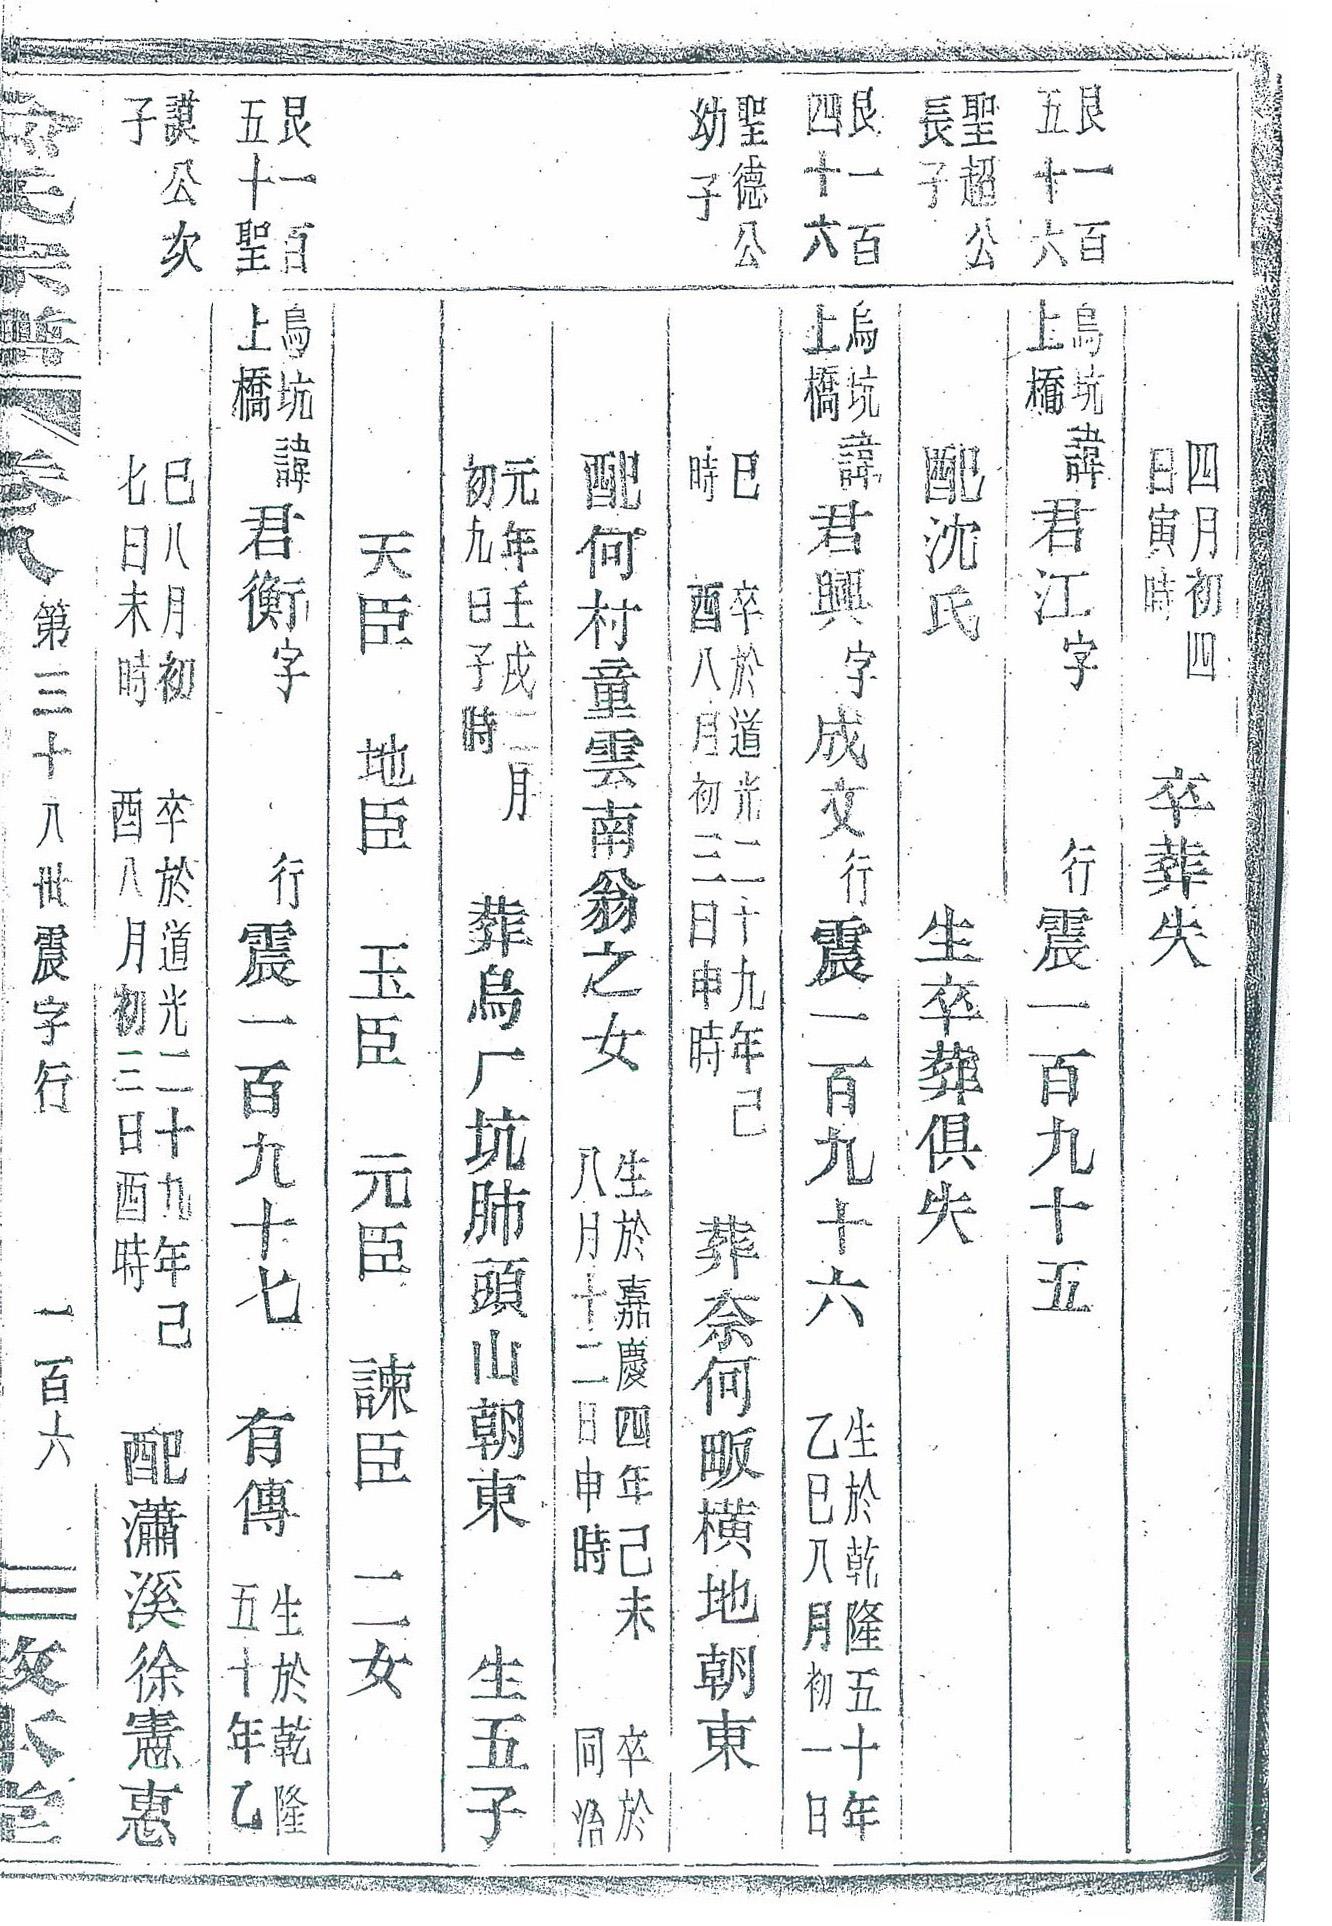 四月初四
日寅時
卒葬失
艮一百
五十六
烏坑
上橋
諱君江字 行震一百九十五
聖超公
長子
配沈氏 生卒葬俱失
艮一百
四十六
烏坑
上橋
諱君興字成文行震一百九十六
生於乾隆五十年
乙巳八月初一日
聖德公
幼子
巳
時
卒於道光二十九年己
酉八月初三日申時
葬奈何畈橫地朝東
配何村童雲南翁之女
生於嘉慶四年己未
八月十二日申時
卒於
同治
元年壬戌二月
初九日子時
葬烏厂坑肺頭山朝東 生五子
天臣 地臣 玉臣 元臣 諫臣 二女
艮一百
五十聖
烏坑
上橋
諱君衡字 行震一百九十七 有傳
生於乾隆
五十年乙
謨公次
子
巳八月初
七日未時
卒於道光二十九年己
酉八月初三日酉時
配瀟溪徐憲惠
宗譜 卷八 第三十八世震字行 一百六